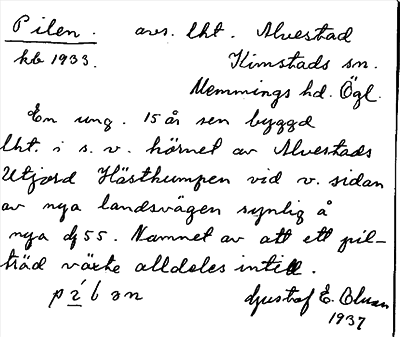 Pilen. avs. lht. Alvestad
hb 1933. Kimstads sn.
Memmings hd. Ögl.
En ung. 15 år sen byggd
lht. i s. v. hörnet av Alvestads
utjord Hästhumpen vid v. sidan
av nya landsvägen synlig å
nya dj 55. Namnet av att ett pil-
träd växte alldeles intill.
Gustaf E. Olsson
1937